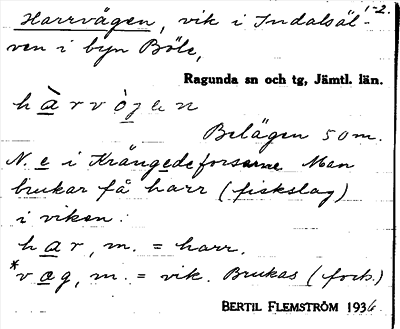 Harrvågen, vik i Indalsäl- 1-2.
ven i byn Böle,
Ragunda sn och tg, Jämtl. län.
hàrvòjen
Belägen 50 m.
N. e i Krångedeforsarne Man
brukar få harr (fiskslag)
i viken.
har, m. = harr.
*vog, m. = vik. Brukas (fork.)
BERTIL FLEMSTRÖM 1936